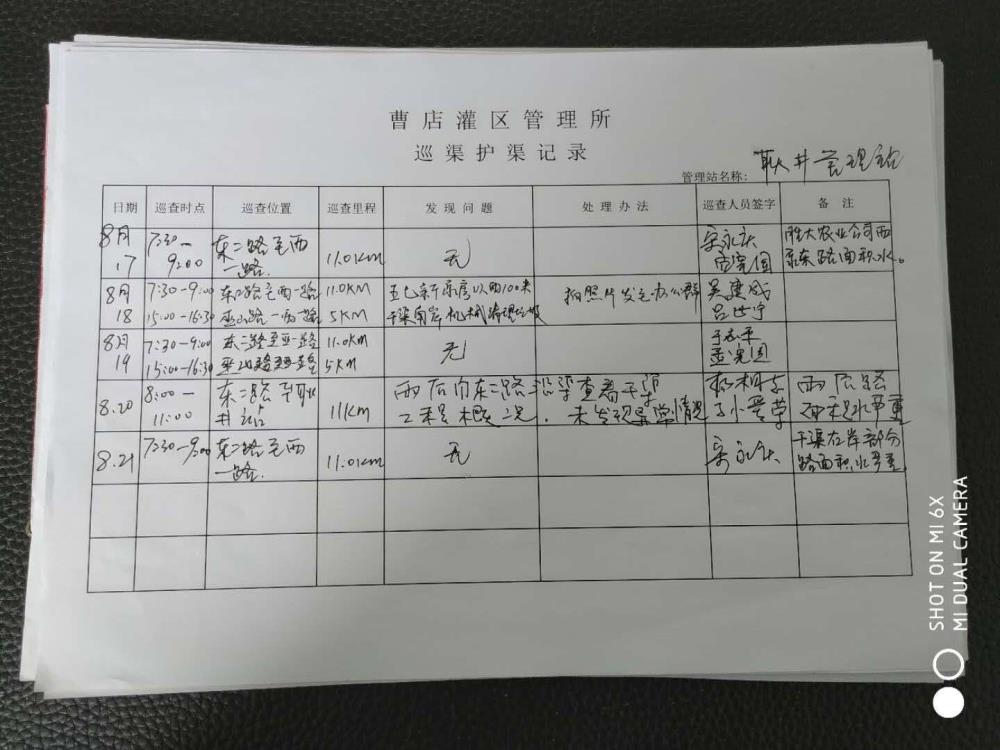 曹店灌区管理所
巡渠护渠记录
管理站名称: 耿井管理站
日期 巡查时点 巡查位置 巡查里程 发现问题 处理办法 巡查人员签字 备注
8月 7:30— 东二路至西 永庆 农业公司西
17 9:00 一路. 11.0KM 无 东路面积水。
8月 7:30-9:00 东二路至西一路 11.0KM 以西100米 拍照片发至办公群 吴建成
18 15:00-16:30 西一路 5KM 干渠南岸机械清理垃圾 吕世宁
8月 7:30-9:00 东二路至西一路 11.0KM 于志平
19 15:00-16:30 5KM 无
8.20 8:00— 东二路至耿 雨后向东二路沿渠查看干渠 杨相 雨后路
11:00 井站 11KM 工程概况. 未发现异常情况 面积水严重
8.21 7:30-9:00 东二路至西 无 永庆 干渠左岸部分
一路. 11.0KM 路面积水严重.
SHOT ON MI 6X
MI DUAL CAMERA